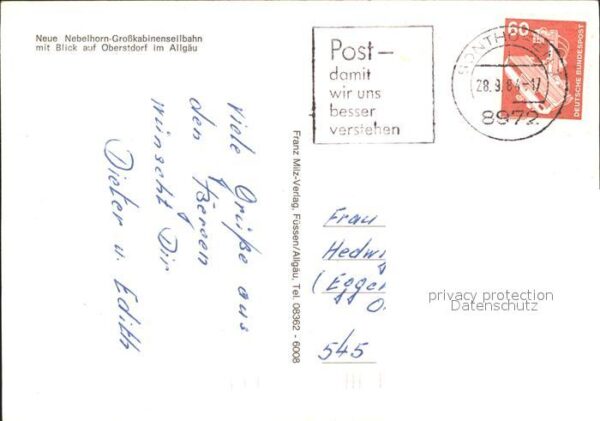 Neue Nebelhorn-Großkabinenseilbahn
mit Blick auf Oberstdorf im Allgäu
Viele Grüße aus
den Bergen
wünscht Dir
Dieter u. Edith
Franz Milz-Verlag, Füssen/Allgäu, Tel. 08362 - 6008
Post –
damit
wir uns
besser
verstehen
SONTHOFEN
28.9.84-17
8972
60
DEUTSCHE BUNDESPOST
Frau
Hedwi
(Egger
O.
545
privacy protection
Datenschutz